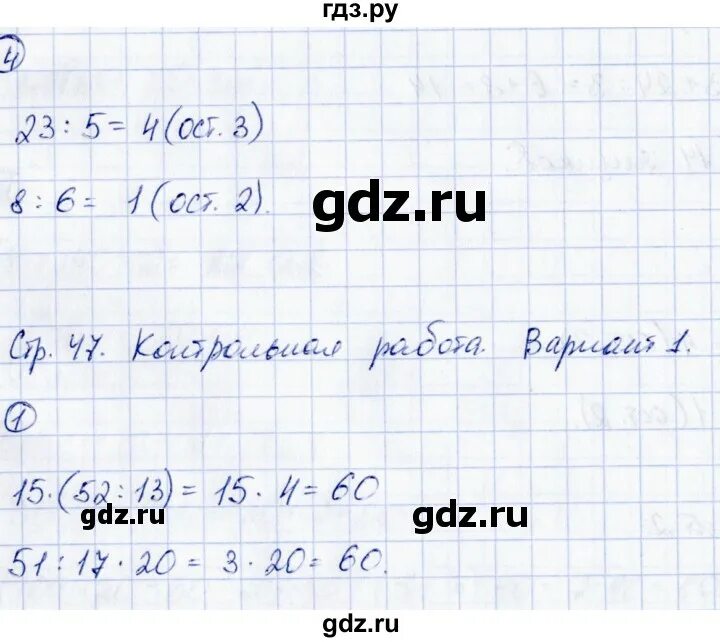 гдз.ру
4
23 : 5 = 4 (ост. 3)
8 : 6 = 1 (ост. 2).
gdz.ru
Стр. 47. Контрольная работа. Вариант 1.
1
15 · (52 : 13) = 15 · 4 = 60
gdz.ru
gdz.ru
51 : 17 · 20 = 3 · 20 = 60.
gdz.ru